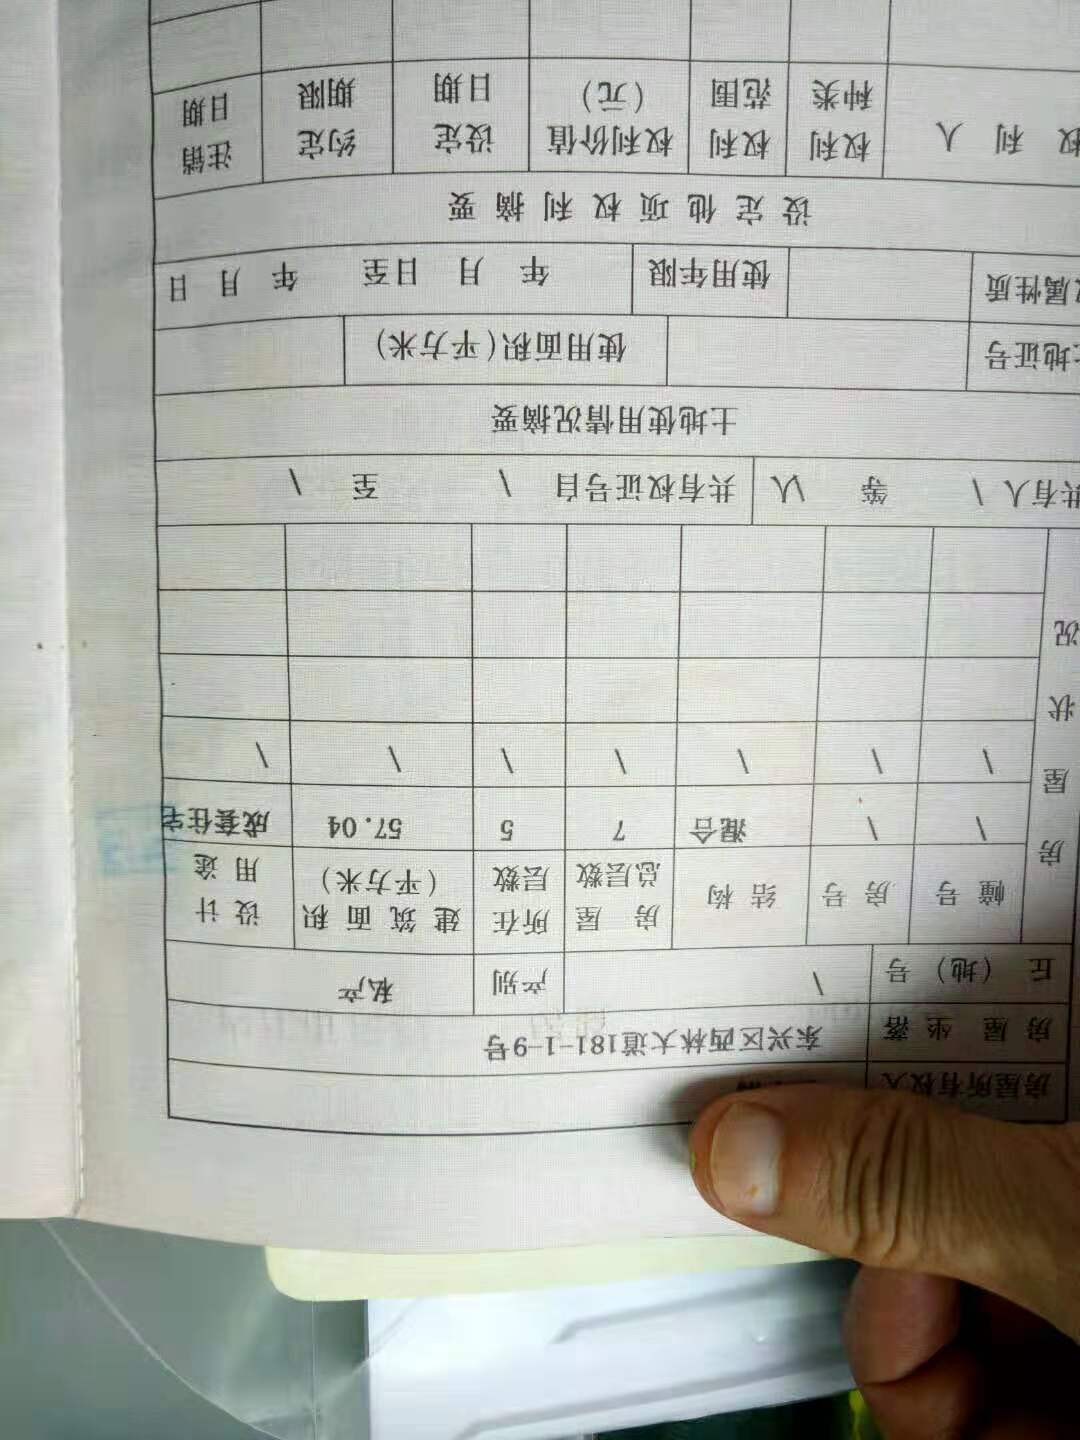 房屋所有权人
房屋坐落 东兴区西林大道181-1-9号
丘（地）号 \ 产别 私产
房屋状况
幢号 房号 结构 房屋总层数 所在层数 建筑面积（平方米） 设计用途
\ \ 混合 7 5 57.04 成套住宅
\ \ \ \ \ \ \
共有人 \ 等 \人 共有权证号自 \ 至 \
土地使用情况摘要
土地证号 使用面积(平方米)
属性质 使用年限 年 月 日至 年 月 日
设定他项权利摘要
权利人 权利种类 权利范围 权利价值（元） 设定日期 约定期限 注销日期